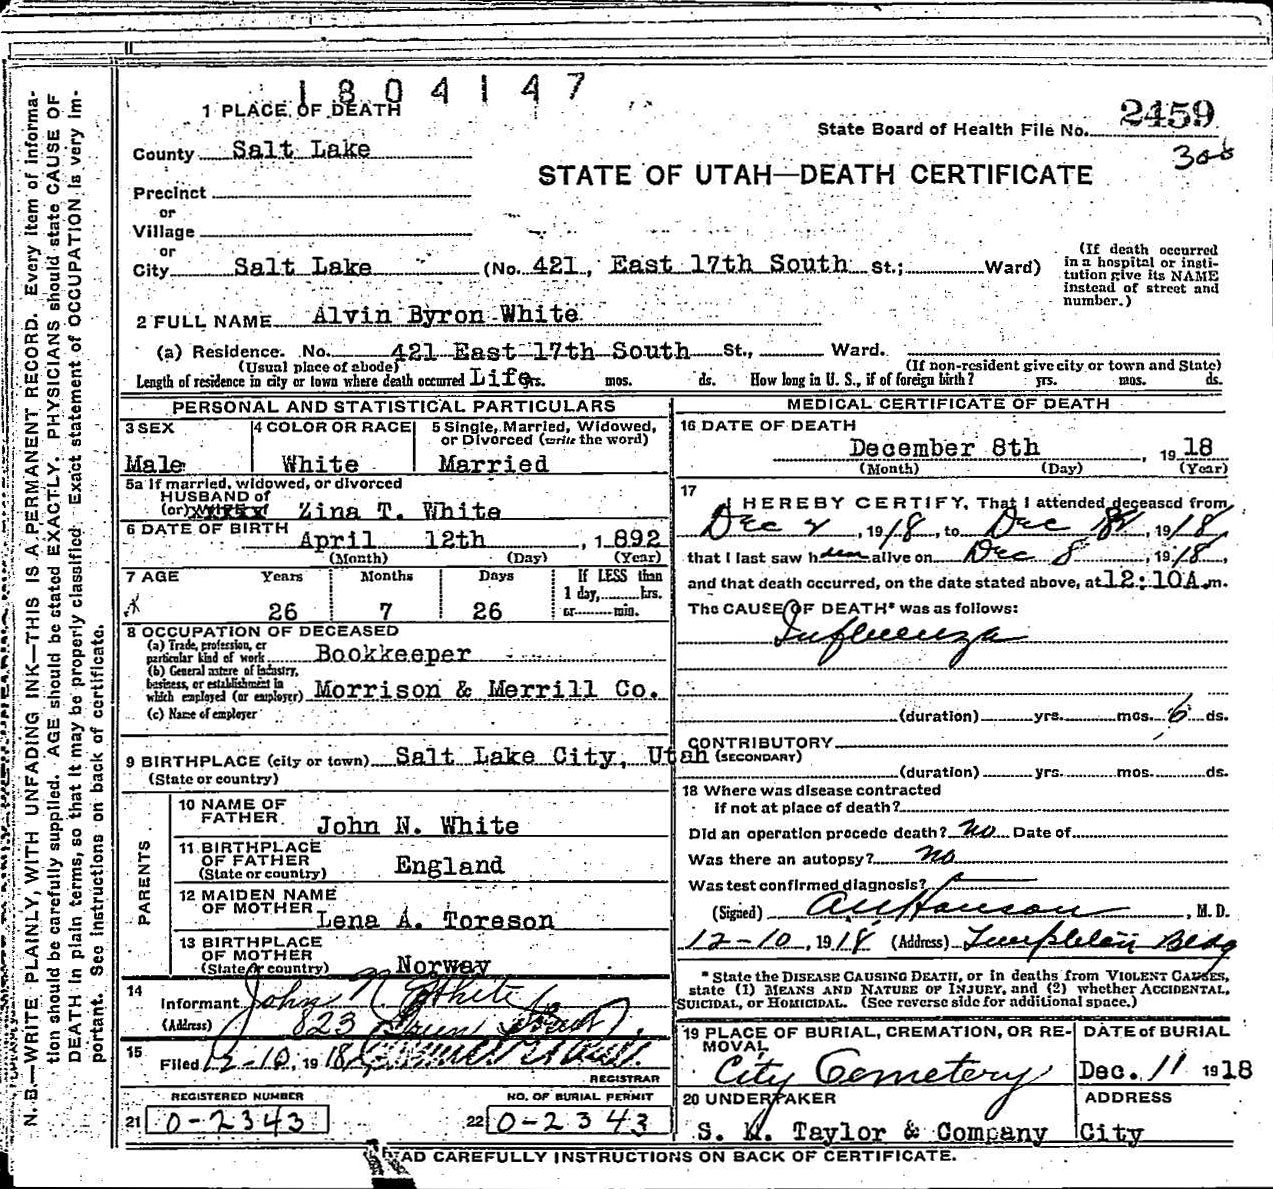 1804147
1 PLACE OF DEATH
State Board of Health File No. 2459
300
County Salt Lake
STATE OF UTAH—DEATH CERTIFICATE
Precinct
or
Village
or
City Salt Lake (No. 421, East 17th South St.; Ward)
(If death occurred
in a hospital or insti-
tution give its NAME
instead of street and
number.)
2 FULL NAME Alvin Byron White
(a) Residence. No. 421 East 17th South St., Ward.
(Usual place of abode) (If non-resident give city or town and State)
Length of residence in city or town where death occurred Life yrs. mos. ds. How long in U. S., if of foreign birth? yrs. mos. ds.
PERSONAL AND STATISTICAL PARTICULARS
3 SEX 4 COLOR OR RACE 5 Single, Married, Widowed,
or Divorced (write the word)
Male White Married
5a If married, widowed, or divorced
HUSBAND of
(or) Zina T. White
6 DATE OF BIRTH
April 12th, 1892
(Month) (Day) (Year)
7 AGE Years Months Days If LESS than
1 day, hrs.
26 7 26 or min.
8 OCCUPATION OF DECEASED
(a) Trade, profession, or
particular kind of work Bookkeeper
(b) General nature of industry,
business, or establishment in
which employed (or employer) Morrison & Merrill Co.
(c) Name of employer
9 BIRTHPLACE (city or town) Salt Lake City, Utah
(State or country)
PARENTS
10 NAME OF
FATHER John N. White
11 BIRTHPLACE
OF FATHER
(State or country) England
12 MAIDEN NAME
OF MOTHER Lena A. Toreson
13 BIRTHPLACE
OF MOTHER
(State or country) Norway
14
Informant John N. White
(Address) 823
15
Filed 12-10, 1918
REGISTRAR
REGISTERED NUMBER NO. OF BURIAL PERMIT
21 0-2343 22 0-2343
MEDICAL CERTIFICATE OF DEATH
16 DATE OF DEATH
December 8th, 1918
(Month) (Day) (Year)
17
I HEREBY CERTIFY, That I attended deceased from
Dec 2, 1918, to Dec 8, 1918
that I last saw him alive on Dec 8, 1918,
and that death occurred, on the date stated above, at 12:10A.m.
The CAUSE OF DEATH* was as follows:
Influenza
(duration) yrs. mos. 6 ds.
CONTRIBUTORY
(SECONDARY)
(duration) yrs. mos. ds.
18 Where was disease contracted
if not at place of death?
Did an operation precede death? no Date of
Was there an autopsy? no
Was test confirmed diagnosis?
(Signed) Hanson, M. D.
12-10, 1918 (Address) Templeton Bldg
* State the DISEASE CAUSING DEATH, or in deaths from VIOLENT CAUSES,
state (1) MEANS AND NATURE OF INJURY, and (2) whether ACCIDENTAL,
SUICIDAL, or HOMICIDAL. (See reverse side for additional space.)
19 PLACE OF BURIAL, CREMATION, OR RE- DATE of BURIAL
MOVAL
City Cemetery Dec. 11 1918
20 UNDERTAKER ADDRESS
S. M. Taylor & Company City
READ CAREFULLY INSTRUCTIONS ON BACK OF CERTIFICATE.
N. B.—WRITE PLAINLY, WITH UNFADING INK—THIS IS A PERMANENT RECORD. Every item of informa-
tion should be carefully supplied. AGE should be stated EXACTLY. PHYSICIANS should state CAUSE OF
DEATH in plain terms, so that it may be properly classified. Exact statement of OCCUPATION is very im-
portant. See instructions on back of certificate.